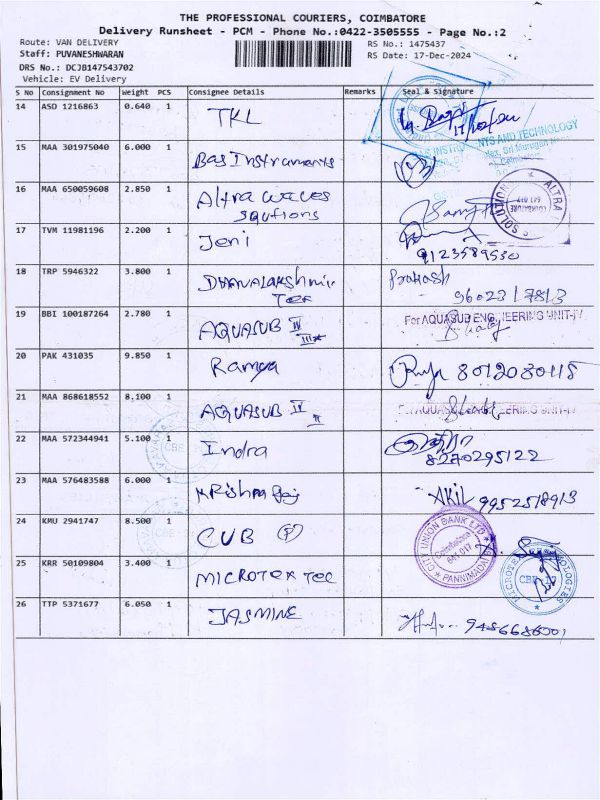 THE PROFESSIONAL COURIERS, COIMBATORE
Delivery Runsheet - PCM - Phone No.:0422-3505555 - Page No.:2
Route: VAN DELIVERY RS No.: 1475437
Staff: PUVANESHWARAN RS Date: 17-Dec-2024
DRS No.: DCJB147543702
Vehicle: EV Delivery
S No Consignment No Weight PCS Consignee Details Remarks Seal & Signature
14 ASD 1216863 0.640 1 TKL
NTS AND TECHNOLOGY
15 MAA 301975040 6.000 1 Bas Instruments
16 MAA 650059608 2.850 1 Altra waves
ALTRA
SOLUTION
COIMBATORE
641 017
17 TVM 11981196 2.200 1 Jeni
9123589530
18 TRP 5946322 3.800 1 DHANALAKshmi Prakash
Tex 96023 17813
19 BBI 100187264 2.780 1 AQUASUB IV For AQUASUB ENGINEERING UNIT-IV
III
20 PAK 431035 9.850 1 Ramya 8012080115
21 MAA 868618552 8.100 1 AQUASUB IV
II
22 MAA 572344941 5.100 1 Indra
8270295122
23 MAA 576483588 6.000 1 Krishna Raj AKIL 9952518913
24 KMU 2941747 8.500 1 CUB P
CITY UNION BANK LTD
Coimbatore
641 017
25 KRR 50109804 3.400 1 MICROTEX TEC
26 TTP 5371677 6.050 1 JASMINE 9486686001